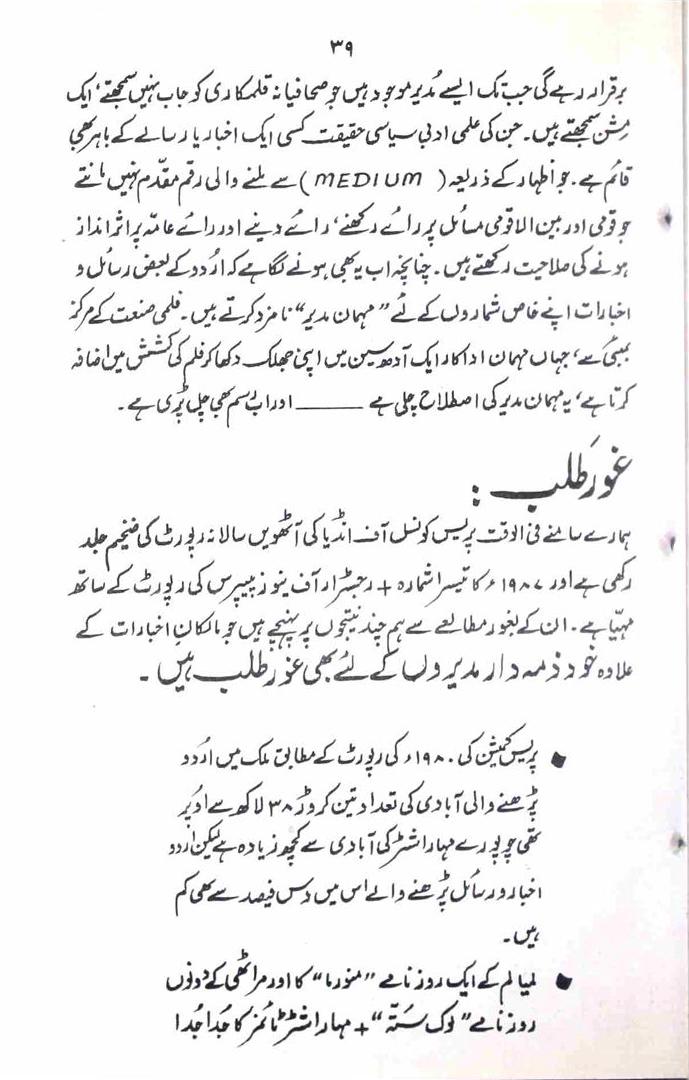 ۳۹
برقرار رہے گی جب تک ایسے مُدیر موجود ہیں جو صحافیانہ قلمکاری کو جاب نہیں سمجھتے، ایک
مِشن سمجھتے ہیں۔ جن کی علمی ادبی سیاسی حقیقت کسی ایک اخبار یا رسالے کے باہر بھی
قائم ہے۔ جو اظہار کے ذریعہ (MEDIUM) سے ملنے والی رقم مقدّم نہیں مانتے
جو قومی اور بین الاقوامی مسائل پر رائے رکھنے، رائے دینے اور رائے عامّہ پر اثر انداز
ہونے کی صلاحیت رکھتے ہیں۔ چنانچہ اب یہ بھی ہونے لگا ہے کہ اُردو کے بعض رسائل و
اخبارات اپنے خاص شماروں کے لئے "مہمان مدیر" نامزد کرتے ہیں۔ فلمی صنعت کے مرکز
بمبئی سے، جہاں مہمان اداکار ایک آدھ سین میں اپنی جھلک دکھا کر فلم کی کشش میں اضافہ
کرتا ہے، یہ مہمان مدیر کی اصطلاح چلی ہے ——— اور اب رسم بھی چل پڑی ہے۔
غور طلب :
ہمارے سامنے فی الوقت پریس کونسل آف انڈیا کی آٹھویں سالانہ رپورٹ کی ضخیم جلد
رکھی ہے اور ۱۹۸۷ء کا تیسرا شمارہ + رجسٹرار آف نیوز پیپرس کی رپورٹ کے ساتھ
مہیّا ہے۔ ان کے بغور مطالعے سے ہم چند نتیجوں پر پہنچے ہیں جو مالکانِ اخبارات کے
علاوہ خود ذمہ دار مدیروں کے لئے بھی غور طلب ہیں۔
● پریس کمیشن کی ۱۹۸۰ء کی رپورٹ کے مطابق ملک میں اُردو
پڑھنے والی آبادی کی تعداد تین کروڑ ۳۸ لاکھ سے اُوپر
تھی جو پورے مہاراشٹر کی آبادی سے کچھ زیادہ ہے لیکن اردو
اخبار و رسائل پڑھنے والے اس میں دس فیصد سے بھی کم
ہیں۔
● ملیالم کے ایک روزنامے "منورما" کا اور مراٹھی کے دونوں
روزنامے "لوک ستّہ" + مہاراشٹر ٹائمز کا جُدا جُدا